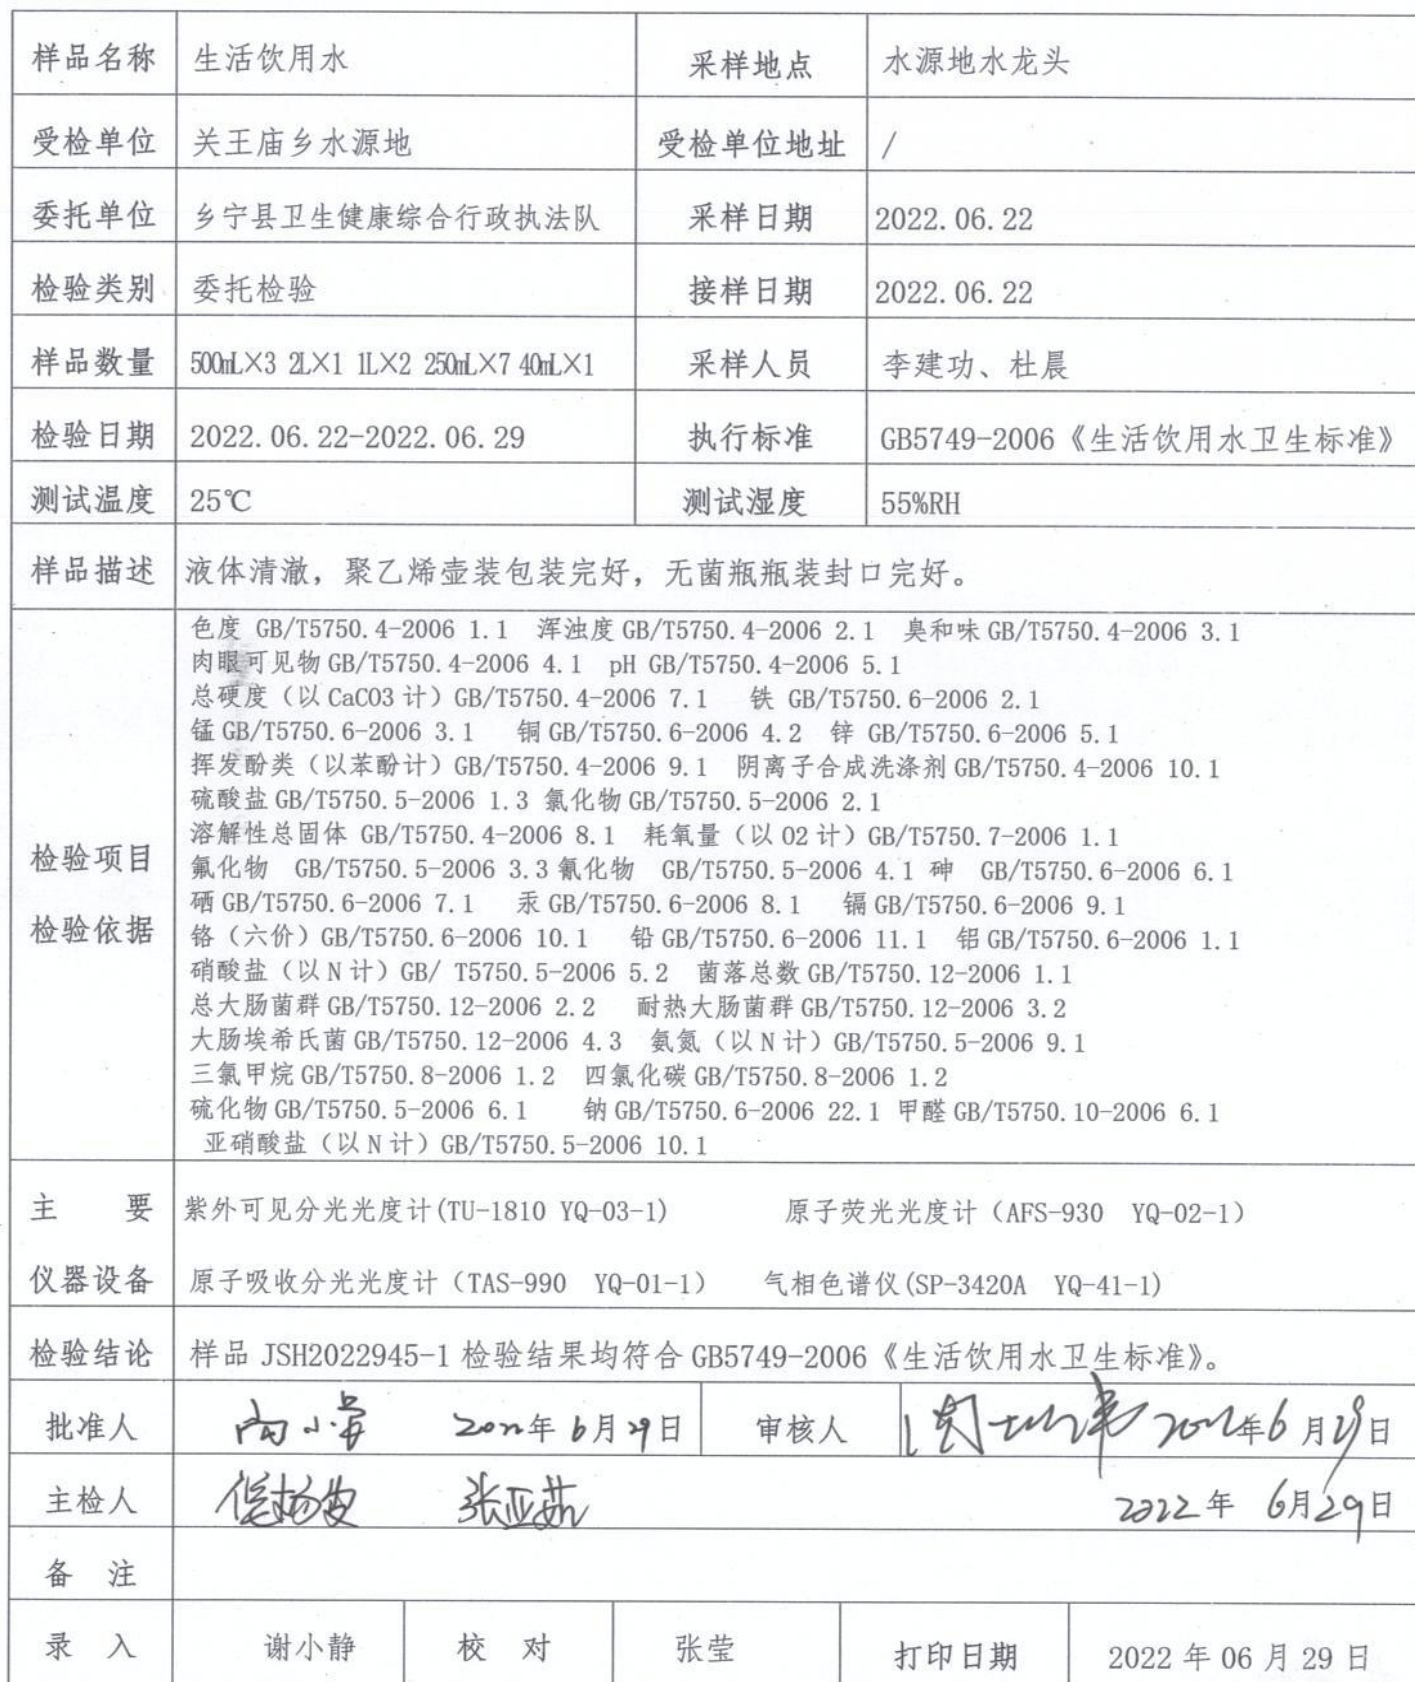 样品名称 生活饮用水 采样地点 水源地水龙头
受检单位 关王庙乡水源地 受检单位地址 /
委托单位 乡宁县卫生健康综合行政执法队 采样日期 2022.06.22
检验类别 委托检验 接样日期 2022.06.22
样品数量 500mL×3 2L×1 1L×2 250mL×7 40mL×1 采样人员 李建功、杜晨
检验日期 2022.06.22-2022.06.29 执行标准 GB5749-2006《生活饮用水卫生标准》
测试温度 25℃ 测试湿度 55%RH
样品描述 液体清澈，聚乙烯壶装包装完好，无菌瓶瓶装封口完好。
检验项目
检验依据
色度 GB/T5750.4-2006 1.1 浑浊度 GB/T5750.4-2006 2.1 臭和味 GB/T5750.4-2006 3.1
肉眼可见物 GB/T5750.4-2006 4.1 pH GB/T5750.4-2006 5.1
总硬度（以 CaCO3 计）GB/T5750.4-2006 7.1 铁 GB/T5750.6-2006 2.1
锰 GB/T5750.6-2006 3.1 铜 GB/T5750.6-2006 4.2 锌 GB/T5750.6-2006 5.1
挥发酚类（以苯酚计）GB/T5750.4-2006 9.1 阴离子合成洗涤剂 GB/T5750.4-2006 10.1
硫酸盐 GB/T5750.5-2006 1.3 氯化物 GB/T5750.5-2006 2.1
溶解性总固体 GB/T5750.4-2006 8.1 耗氧量（以 O2 计）GB/T5750.7-2006 1.1
氟化物 GB/T5750.5-2006 3.3 氰化物 GB/T5750.5-2006 4.1 砷 GB/T5750.6-2006 6.1
硒 GB/T5750.6-2006 7.1 汞 GB/T5750.6-2006 8.1 镉 GB/T5750.6-2006 9.1
铬（六价）GB/T5750.6-2006 10.1 铅 GB/T5750.6-2006 11.1 铝 GB/T5750.6-2006 1.1
硝酸盐（以 N 计）GB/ T5750.5-2006 5.2 菌落总数 GB/T5750.12-2006 1.1
总大肠菌群 GB/T5750.12-2006 2.2 耐热大肠菌群 GB/T5750.12-2006 3.2
大肠埃希氏菌 GB/T5750.12-2006 4.3 氨氮（以 N 计）GB/T5750.5-2006 9.1
三氯甲烷 GB/T5750.8-2006 1.2 四氯化碳 GB/T5750.8-2006 1.2
硫化物 GB/T5750.5-2006 6.1 钠 GB/T5750.6-2006 22.1 甲醛 GB/T5750.10-2006 6.1
亚硝酸盐（以 N 计）GB/T5750.5-2006 10.1
主 要 紫外可见分光光度计(TU-1810 YQ-03-1) 原子荧光光度计（AFS-930 YQ-02-1）
仪器设备 原子吸收分光光度计（TAS-990 YQ-01-1） 气相色谱仪(SP-3420A YQ-41-1)
检验结论 样品 JSH2022945-1 检验结果均符合 GB5749-2006《生活饮用水卫生标准》。
批准人 2022年6月29日 审核人 2022年6月29日
主检人 张亚茹 2022年 6月29日
备 注
录 入 谢小静 校 对 张莹 打印日期 2022 年 06 月 29 日